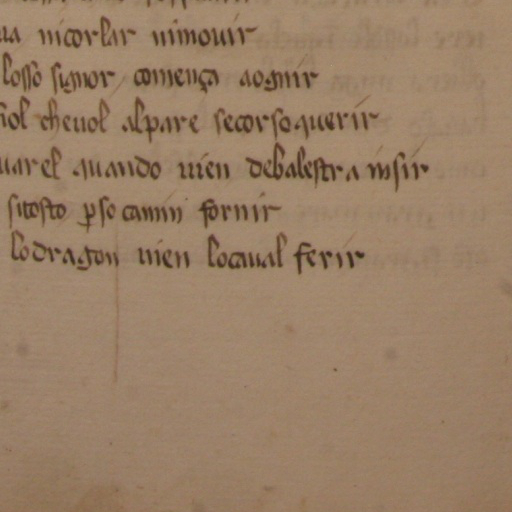 ua nicorlar nimouir
losso signor comença aognir
iol cheuol alpare secorso querir
uarel quando uien debalestra insir
sitosto p̱so camin fornir
lodragon uien locaual ferir